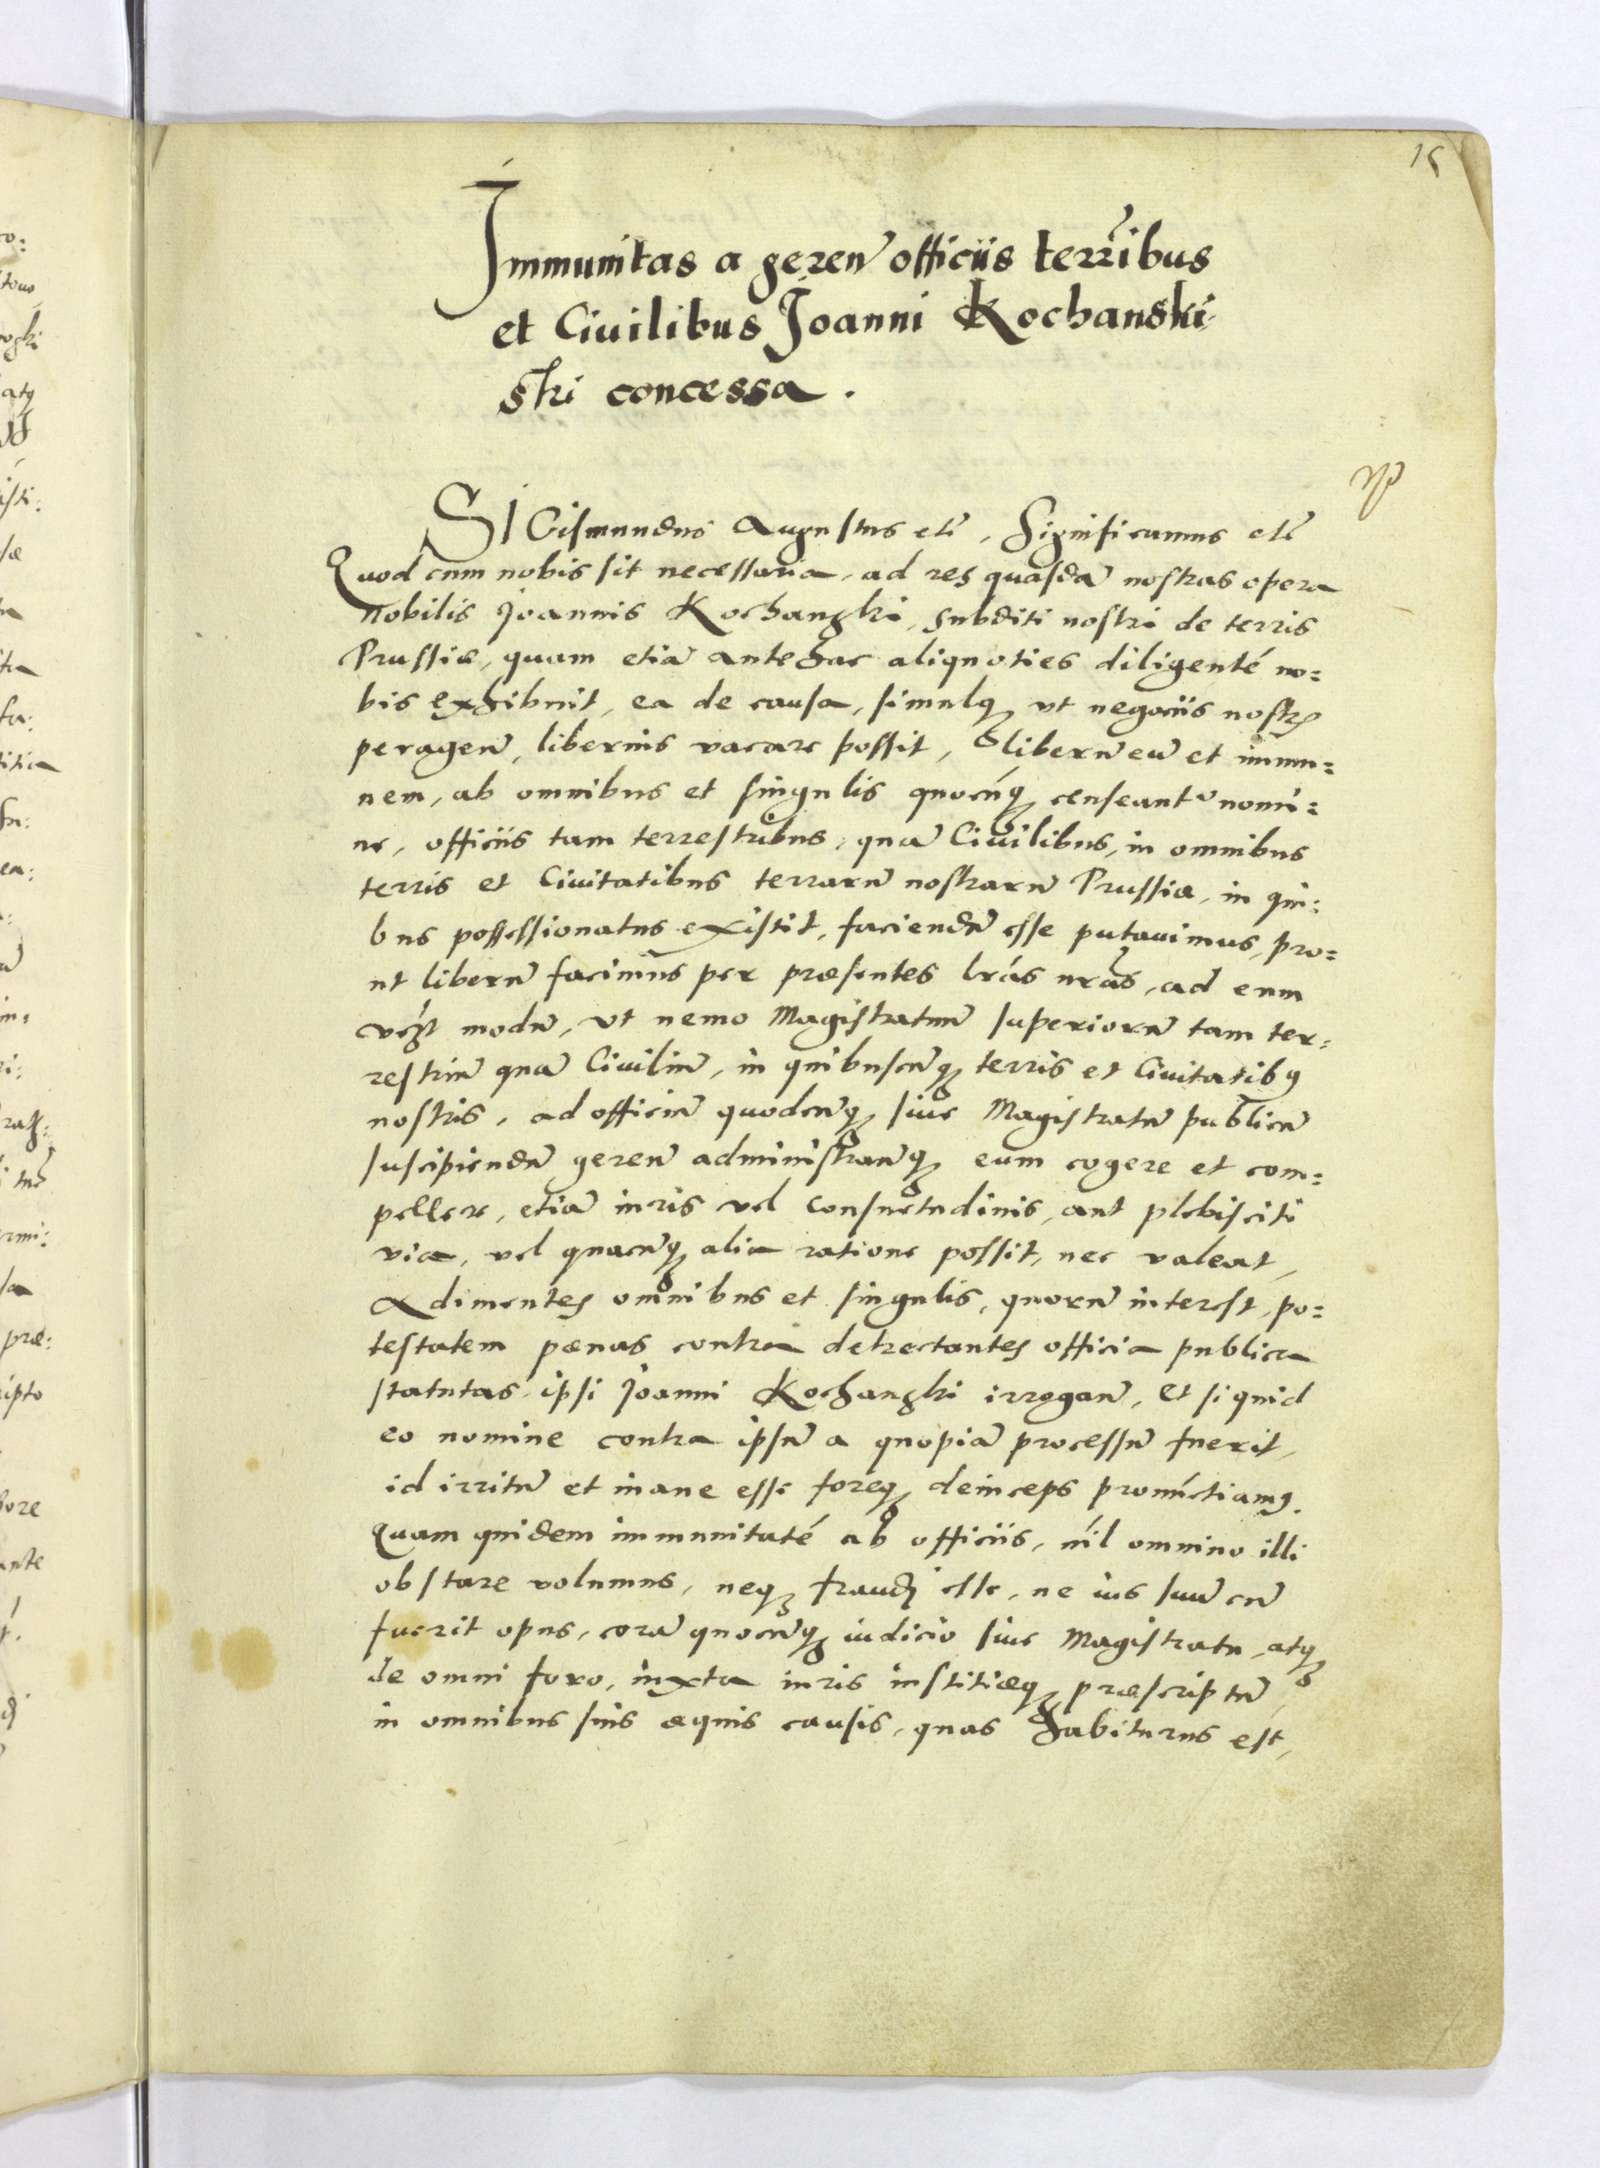 15
Immunitas a geren̄ officiis terr̄ibus
et Ciuilibus Joanni Kochanski
ski concessa.
SIGismundus Augustus etc̄, Significamus etc̄
Quod cum nobis sit necessaria, ad res quasdā nostras opera
Nobilis Joannis Kochanski, subditi nostri de terris
Prussiæ, quam etiā antehac aliquoties diligentē no=
bis exhibuit, ea de causa, simulq; vt negociis nostr̄
peragen̄, liberius vacare possit, liberū eū et immu=
nem, ab omnibus et singulis quocūq; censeant᷑ nomi=
ne, officiis tam terrestribus, quā Ciuilibus, in omnibus
terris et Ciuitatibus terrarū nostrarū Prussiæ, in qui=
bus possessionatus existit, faciendū esse putauimus, pro=
ut liberū facimus per præsentes lrās nrās, ad eum
modū, vt nemo Magistratuū superiorū tam ter=
restriū quā Ciuiliū, in quibuscūq; terris et Ciuitatibꝰ
nostris, ad officiū quodcūq; siue Magistratū publicū
suscipiendū geren̄ administran̄q; eum cogere et com=
pellere, etiā iuris vel consuetudinis, aut plebisciti
via, vel quacūq; alia ratione possit, nec valeat,
Adimentes omnibus et singulis, quorū interest, po=
testatem pænas contra detrectantes officia publica
statutas, ipsi Joanni Kochanski irrogan̄, Et si quid
eo nomine contra ipsū a quopiā processū fuerit,
id irritū et inane esse foreq; deinceps pronūctiamꝰ.
Quam quidem immunitatē ab officiis, nīl omnino illi
obstare volumus, neq; fraudi esse, ne ius suū cū
fuerit opus, corā quocūq; iudicio siue Magistratu, atq;
de omni foro, iuxta iuris iustitiæq; præscriptū,
in omnibus suis æquis causis, quas habiturus est,